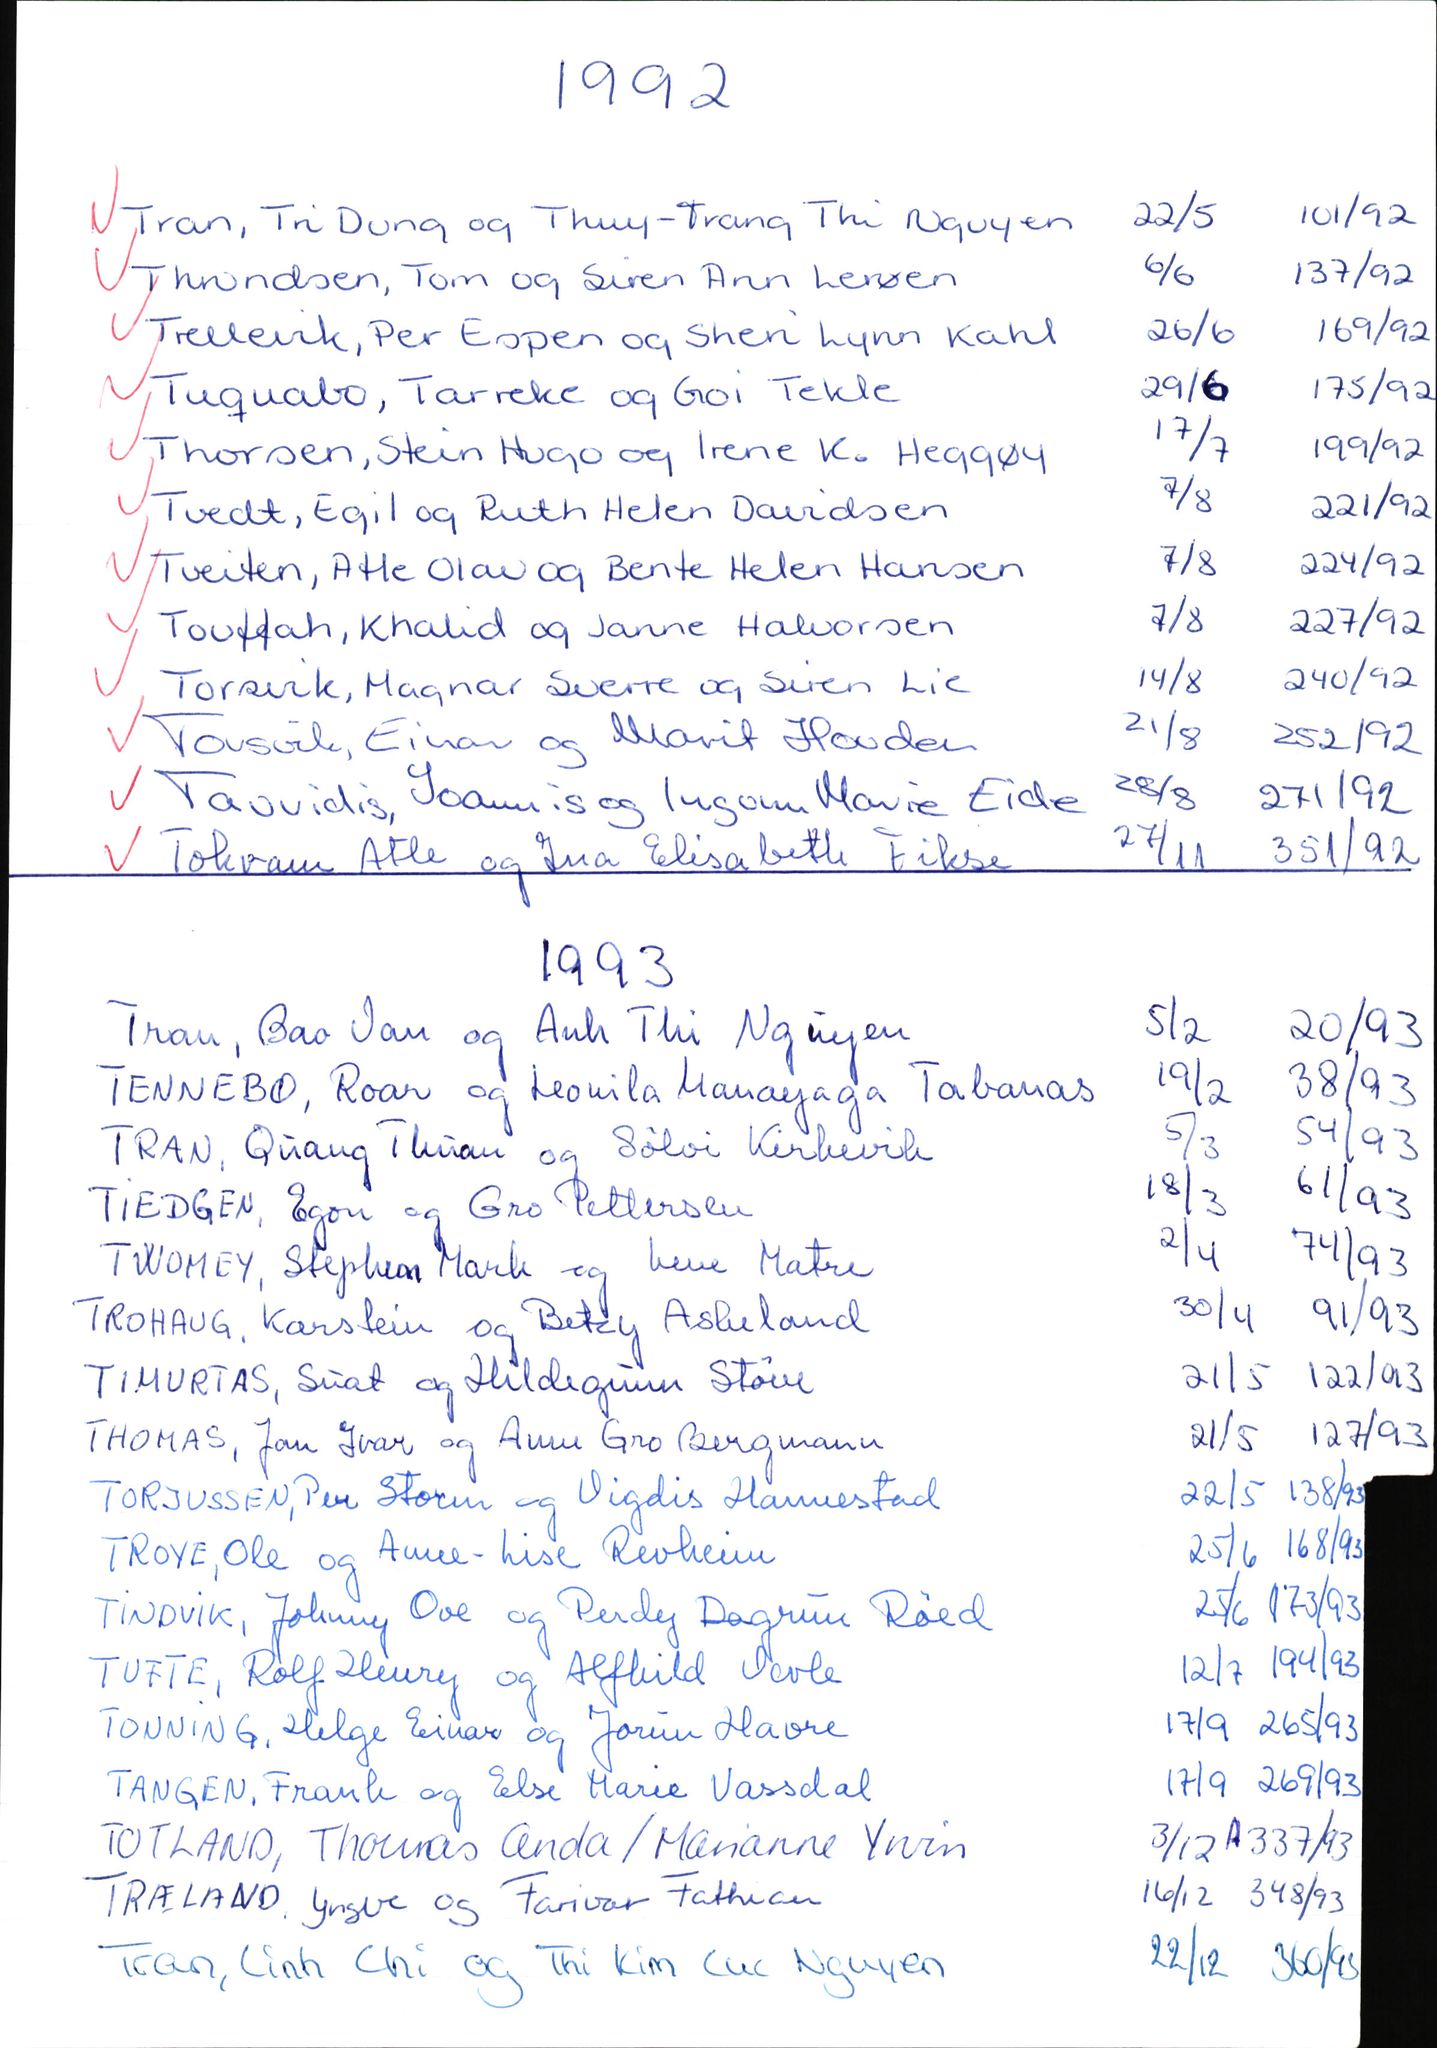 1992
Tran, Tri Dung og Thuy-Trang Thi Nguyen 22/5 101/92
Throndsen, Tom og Siren Ann Lerøen 6/6 137/92
Trellevik, Per Espen og Sheri Lynn Kahl 26/6 169/92
Tuquabo, Tarreke og Goi Tekle 29/6 175/92
Thorsen, Stein Hugo og Irene K. Heggøy 17/7 199/92
Tvedt, Egil og Ruth Helen Davidsen 7/8 221/92
Tveiten, Atle Olav og Bente Helen Hansen 7/8 224/92
Touffah, Khalid og Janne Halvorsen 7/8 227/92
Torsvik, Magnar Sverre og Siren Lie 14/8 240/92
Torsvik, Einar og Marit Hovden 21/8 252/92
Tavridis, Ioannis og Ingunn Marie Eide 28/8 271/92
Tokvam Atle og Ina Elisabeth Fikse 27/11 351/92
1993
Tran, Bao Van og Anh Thi Nguyen 5/2 20/93
TENNEBØ, Roar og Leonila Manayaga Tabanas 19/2 38/93
TRAN, Quang Thuan og Sölvi Kirkevik 5/3 54/93
TIEDGEN, Egon og Gro Pettersen 18/3 61/93
TWOMEY, Stephen Mark og Lene Matre 2/4 74/93
TROHAUG, Karstein og Betzy Askeland 30/4 91/93
TIMURTAS, Suat og Hildegunn Störe 21/5 122/93
THOMAS, Jan Ivar og Anne Gro Bergmann 21/5 127/93
TORJUSSEN, Per Storm og Vigdis Hannestad 22/5 138/93
TROYE, Ole og Anne-Lise Revheim 25/6 168/93
TINDVIK, Johnny Ove og Perdy Dagrun Röed 25/6 173/93
TUFTE, Rolf Henry og Alfhild Vevle 12/7 194/93
TONNING, Helge Einar og Jorun Havre 17/9 265/93
TANGEN, Frank og Else Marie Vassdal 17/9 269/93
TOTLAND, Thomas Anda / Marianne Yrvin 3/12 A 337/93
TRÆLAND, Yngve og Farivar Fathian 16/12 348/93
Tran, Linh Chi og Thi Kim Cuc Nguyen 22/12 360/93